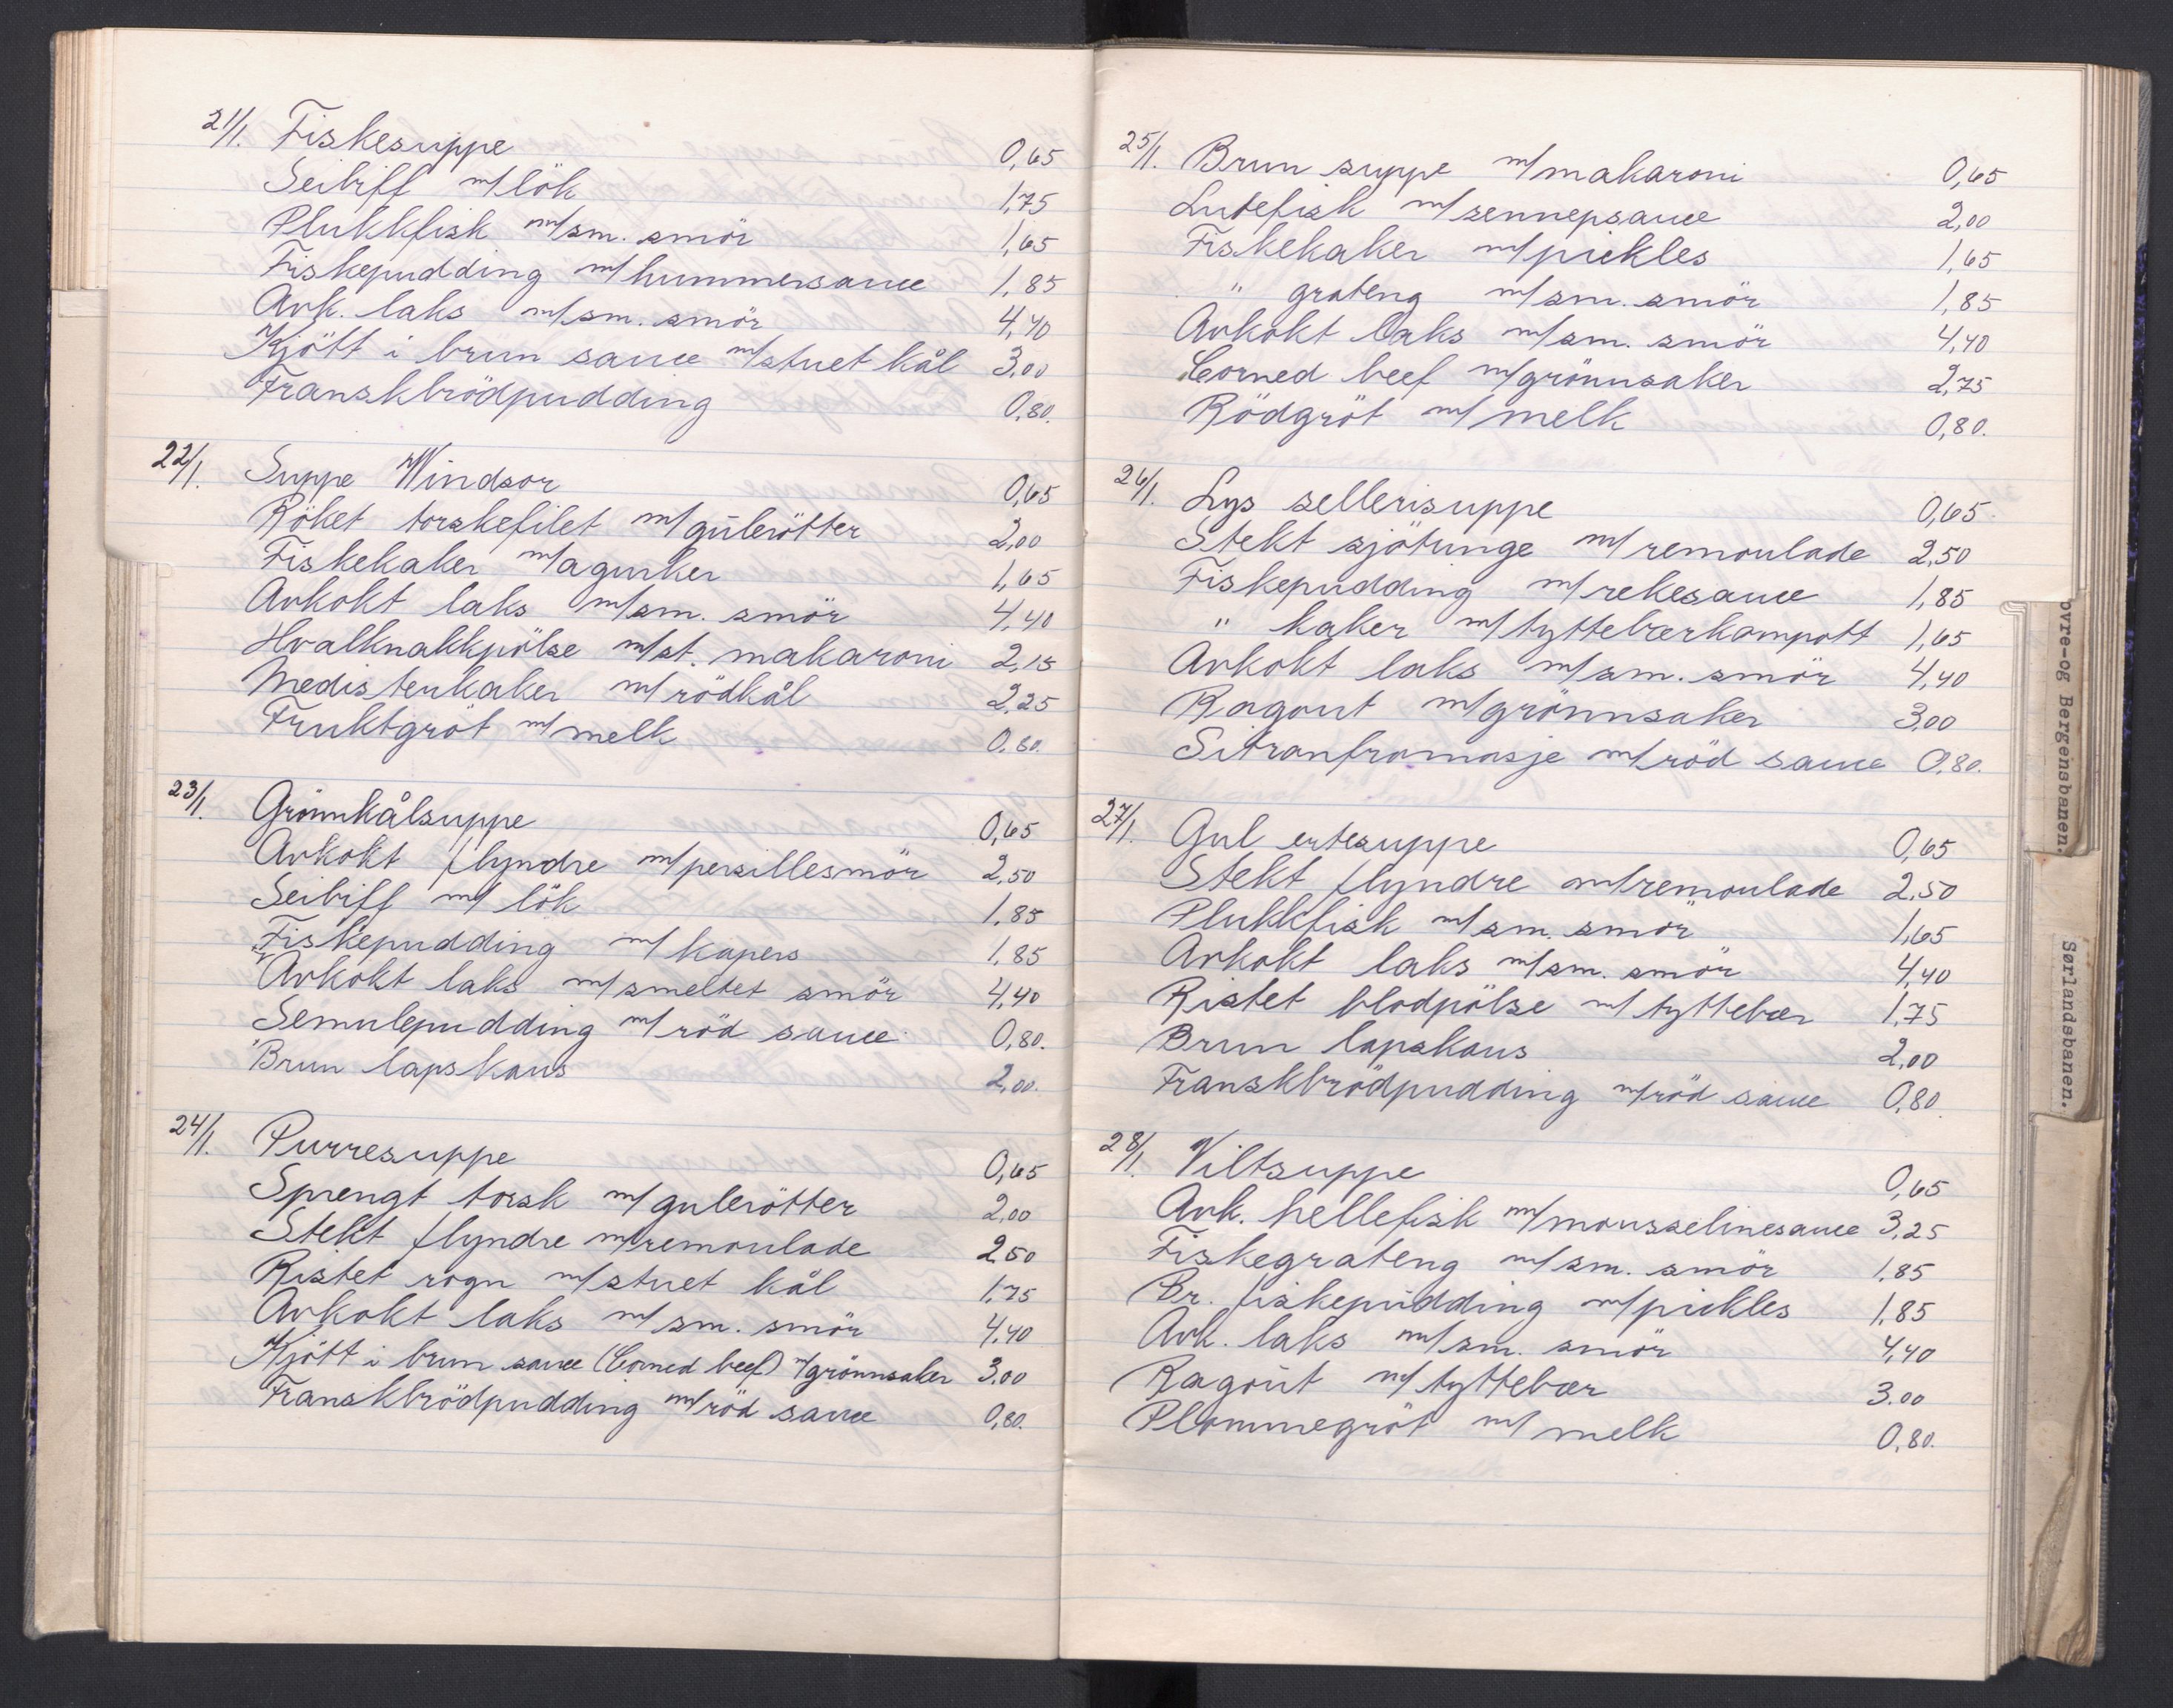 21/1. Fiskesuppe 0,65
Seibiff m/lök 1,75
Plukkfisk m/sm. smör 1,65
Fiskepudding m/hummersauce 1,85
Avk. laks m/sm. smör 4,40
Kjött i brun sauce m/stuet kål 3,00
Franskbrödpudding 0,80.
22/1. Suppe Windsor 0,65
Röket torskefilet m/gulerötter 2,00
Fiskekaker m/agurker 1,65
Avkokt laks m/sm. smör 4,40
Hvalknakkpölse m/st. makaroni 2,15
Medisterkaker m/rödkål 2,25
Fruktgröt m/melk 0.80.
23/1. Grönnkålsuppe 0,65
Avkokt flyndre m/persillesmör 2,50
Seibiff m/ lök 1,85
Fiskepudding m/ kapers 1,85
Avkokt laks m/smeltet smör 4,40
Semulepudding m/röd sauce 0,80.
Brun lapskaus 2,00.
24/1. Purresuppe 0,65
Sprengt torsk m/gulerötter 2,00
Stekt flyndre m/remoulade 2,50
Ristet rogn m/stuet kål 1,75
Avkokt laks m/sm. smör 4,40
Kjött i brun sauce (Corned beef) m/grönnsaker 3.00
Franskbrödpudding m/röd sauce 0,80.
25/1. Brun suppe m/makaroni 0,65
Lutefisk m/sennepsauce 2,00
Fiskekaker m/pickles 1,65
" grateng m/sm. smör 1,85
Avkokt laks m/sm. smör 4,40
Corned beef m/grönnsaker 2,75
Rödgröt m/melk 0,80.
26/1. Lys sellerisuppe 0,65
Stekt sjötunge m/remoulade 2,50
Fiskepudding m/rekesauce 1,85
" kaker m/tyttebærkompott 1,65
Avkokt laks m/sm. smör 4,40
Ragout m/grönnsaker 3,00
Sitronfromasje m/röd sauce 0,80.
27/1. Gul ertesuppe 0,65
Stekt flyndre m/remoulade 2,50
Plukkfisk m/sm. smör 1,65
Avkokt laks m/sm. smör 4,40
Ristet blodpölse m/ tyttebær 1,75
Brun lapskaus 2,00
Franskbrödpudding m/röd sauce 0,80.
28/1. Viltsuppe 0,65
Avk. hellefisk m/mousselinesauce 3,25
Fiskegrateng m/sm. smör 1,85
Br. fiskepudding m/pickles 1,85
Avk. laks m/sm. smör 4,40
Ragout m/tyttebær 3.00
Plommegröt m/ melk 0,80.
ovre-og Bergensbanen.
Sørlandsbanen.